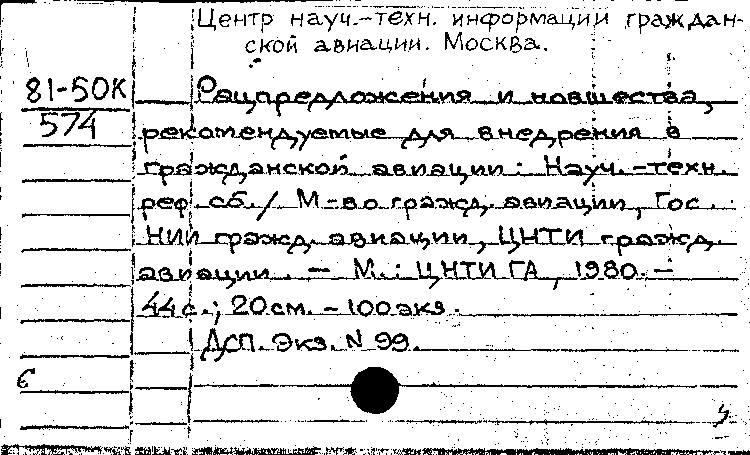 Центр науч.-техн. информации граждан-
ской авиации. Москва.
81-50К
574
Рацпредложения и новшества,
рекомендуемые для внедрения в
гражданской авиации: Науч.-техн.
реф. сб. / М-во гражд. авиации, Гос.
НИИ гражд. авиации, ЦНТИ гражд.
авиации. — М.: ЦНТИ ГА, 1980. —
44 с.; 20 см. - 100 экз.
ДСП. Экз. N 99.